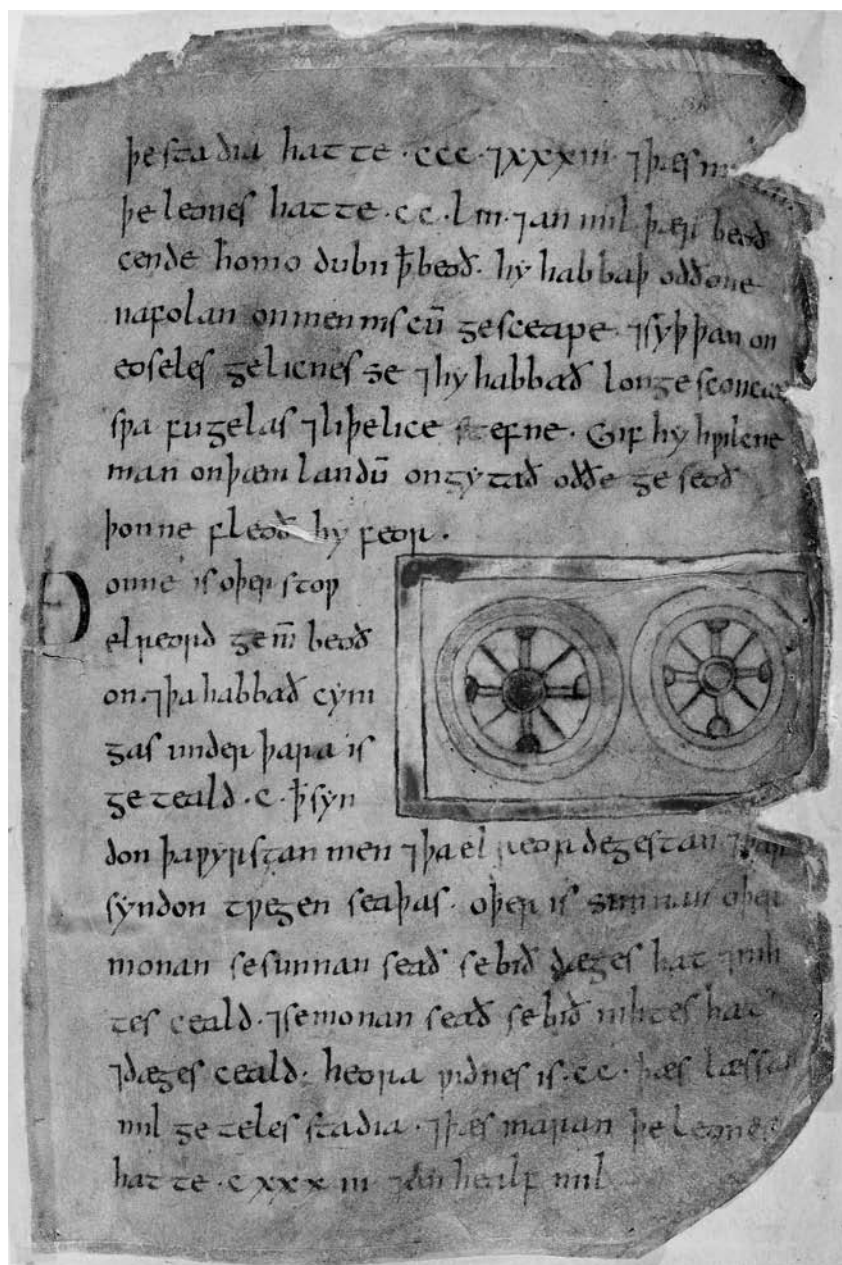 þe stadia hatte · ccc · ⁊xxxiii · ⁊þæs
þe leones hatte · c c · l iii · ⁊an mil · þær beoð
cende homo dubii ꝥ beoð · hy habbaþ oððone
nafolan onmenniscū gesceape · ⁊syþþan on
eoseles gelicnesse ⁊hy habbað longe sconcan
swa fugelas ⁊liþelice stefne · Gif hy hwilcne
man onþæm landū ongytað oððe ge seoð
þonne fleoð hy feor ·
Ðonne is oþer stow
elreord ge m̄ beoð
on · ⁊þa habbað cyni
gas under þara is
ge teald · c · ꝥ syn
don þa wyrstan men ⁊þa el reor degestan ⁊þar
syndon twegen seaþas · oþer is sunnan oþer
monan se sunnan seað se bið dæges hat ⁊nih
tes ceald · ⁊se monan seað se bið nihtes hat
⁊dæges ceald · heora widnes is · c c · þæs læssan
mil ge teles stadia · ⁊þæs maran þe leones
hatte · c xxx iii ⁊an healf mil